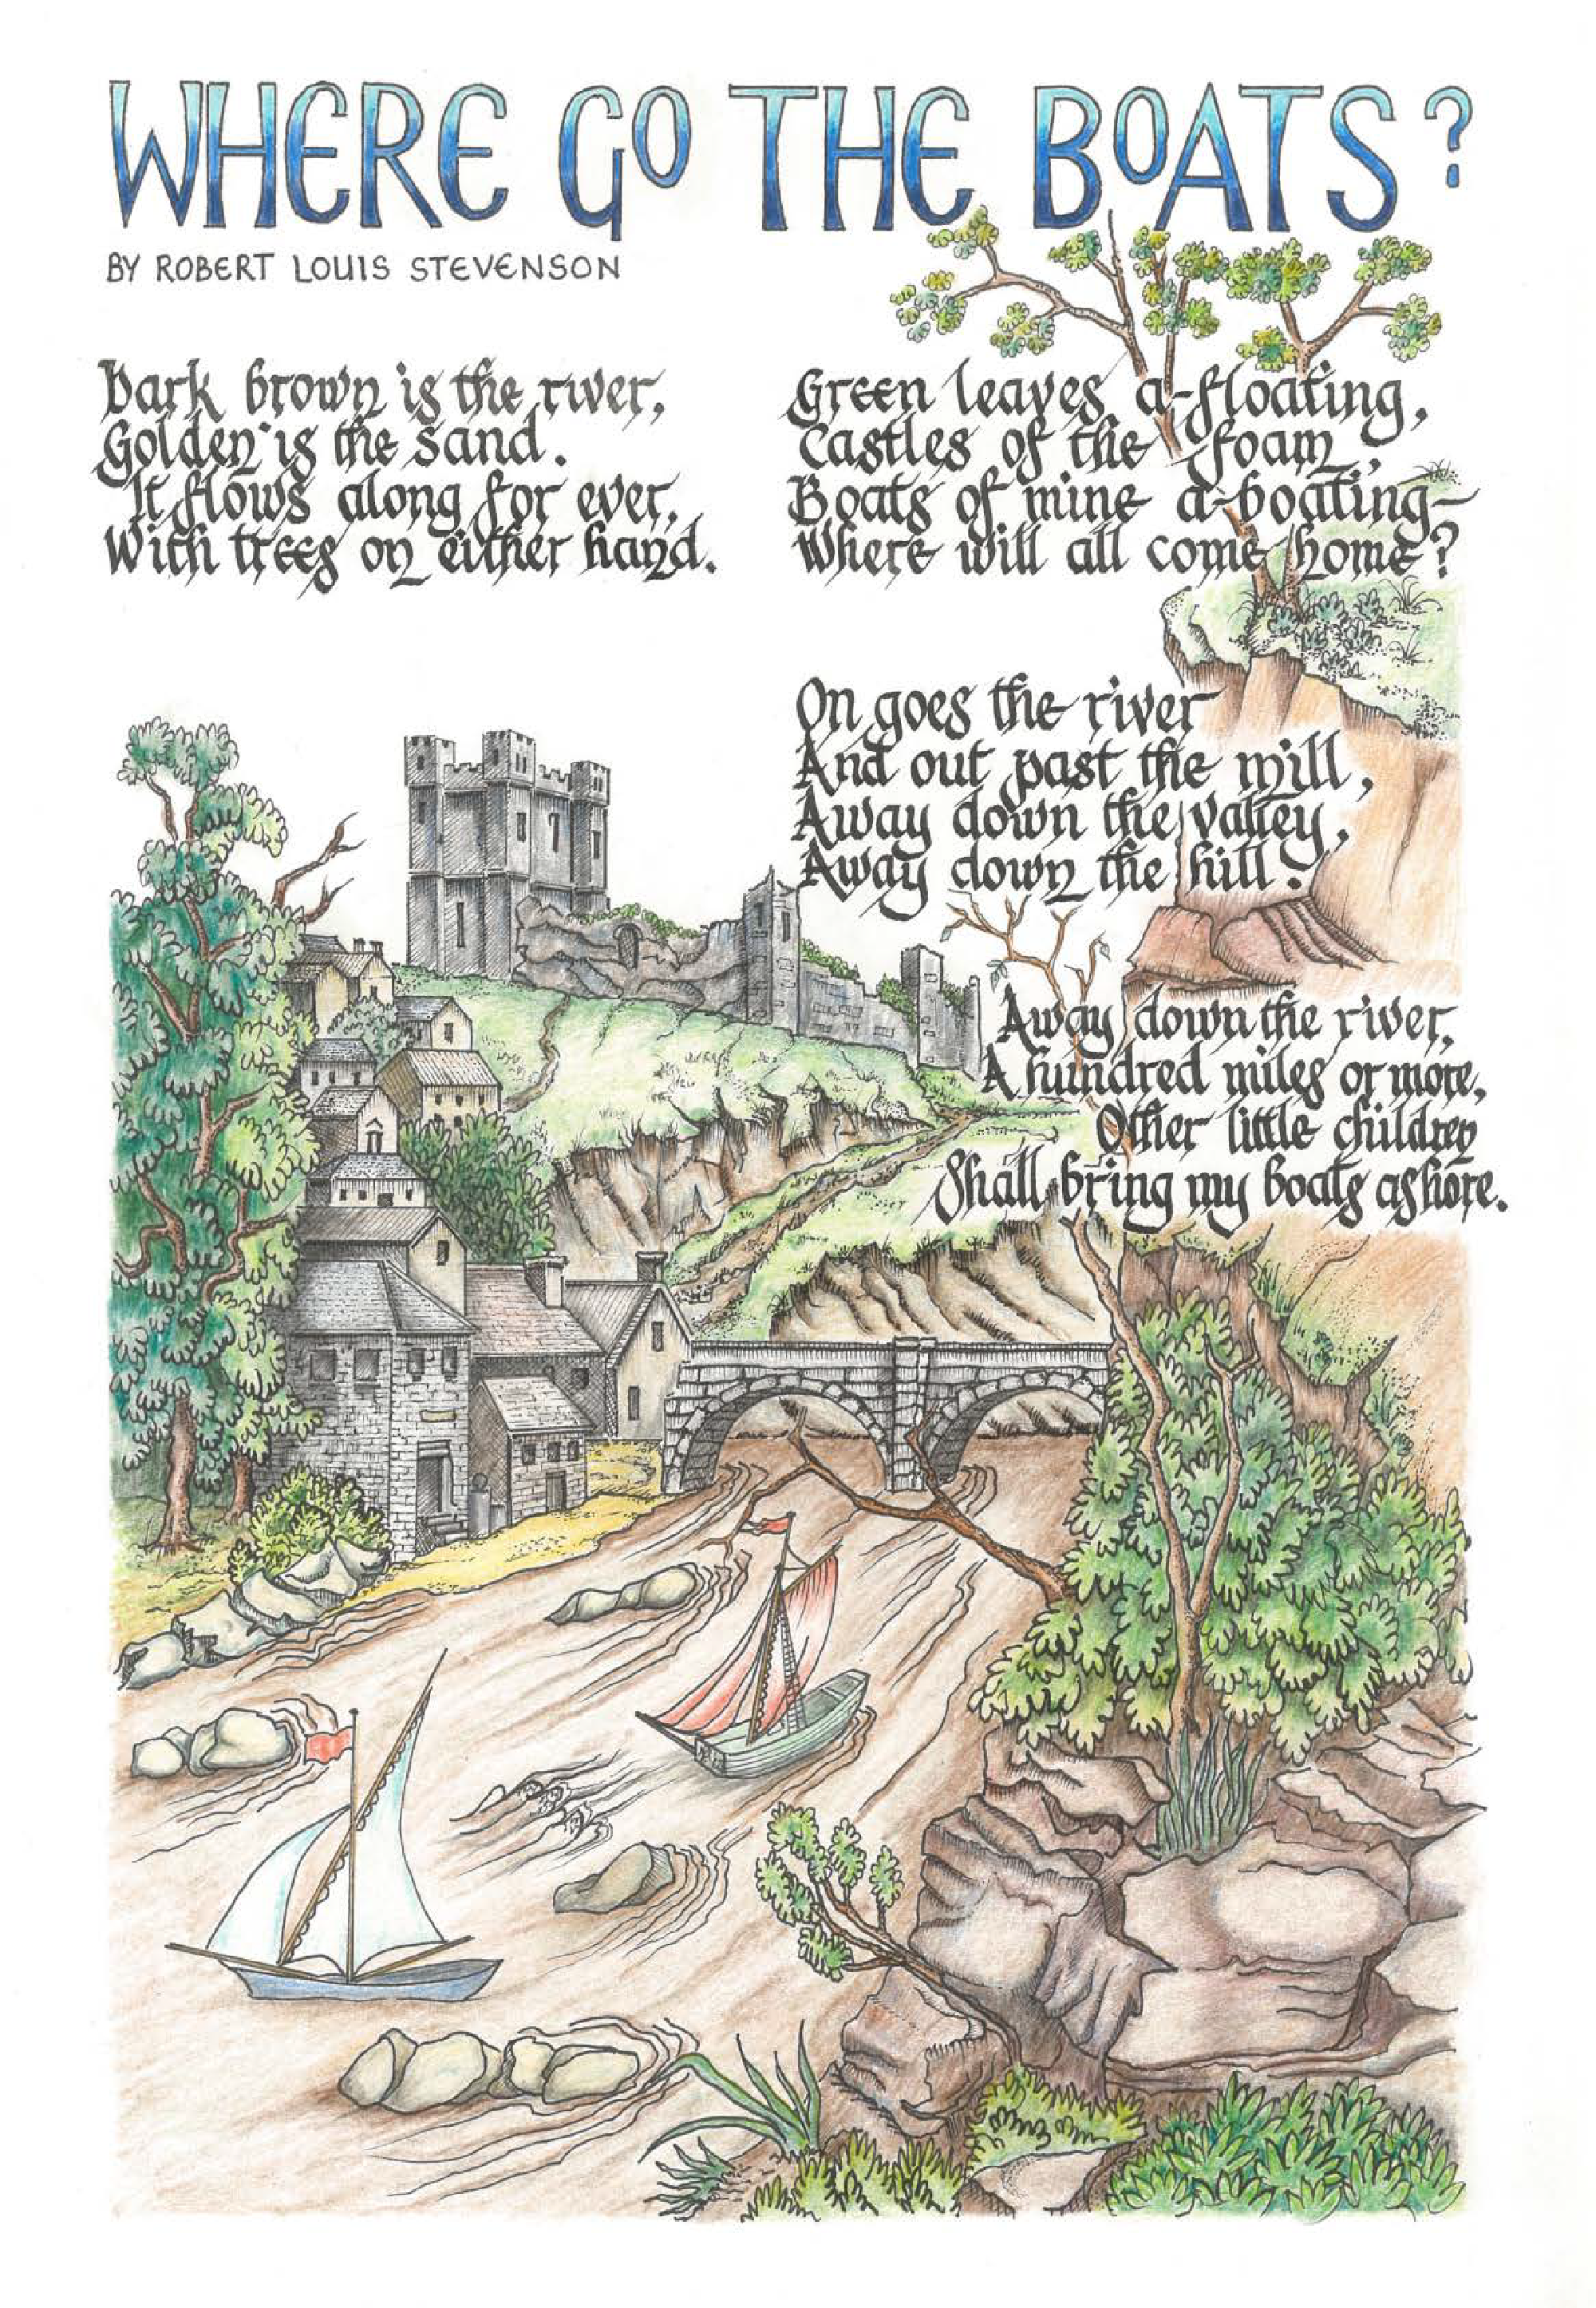 WHERE GO THE BOATS?
BY ROBERT LOUIS STEVENSON
Dark brown is the river,
Golden is the sand.
It flows along for ever,
With trees on either hand.
Green leaves a-floating,
Castles of the foam,
Boats of mine a-boating-
Where will all come home?
On goes the river
And out past the mill,
Away down the valley,
Away down the hill.
Away down the river,
A hundred miles or more,
Other little children
Shall bring my boats ashore.